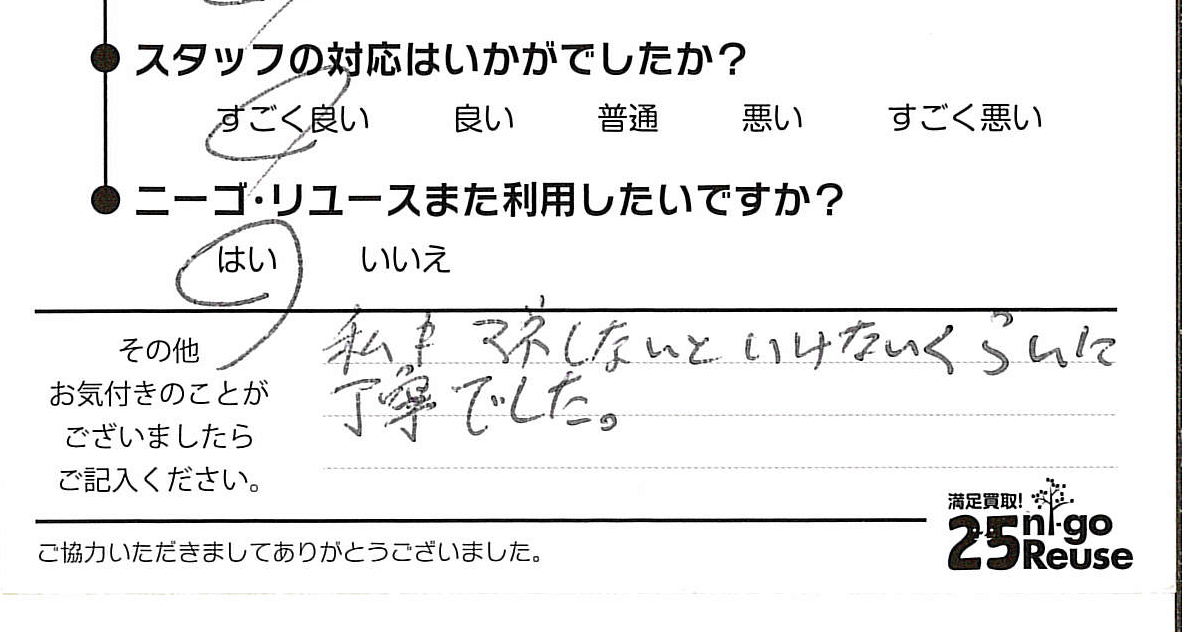 スタッフの対応はいかがでしたか？
すごく良い 良い 普通 悪い すごく悪い
ニーゴ・リユースまた利用したいですか？
はい いいえ
その他
お気付きのことが
ございましたら
ご記入ください。
私も マネしないといけないくらいに
丁寧でした。
満足買取!
25 ni-go
Reuse
ご協力いただきましてありがとうございました。